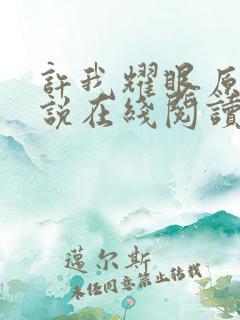 許我耀眼原
說在綫閱讀
邁尔斯
未经同意禁止转载